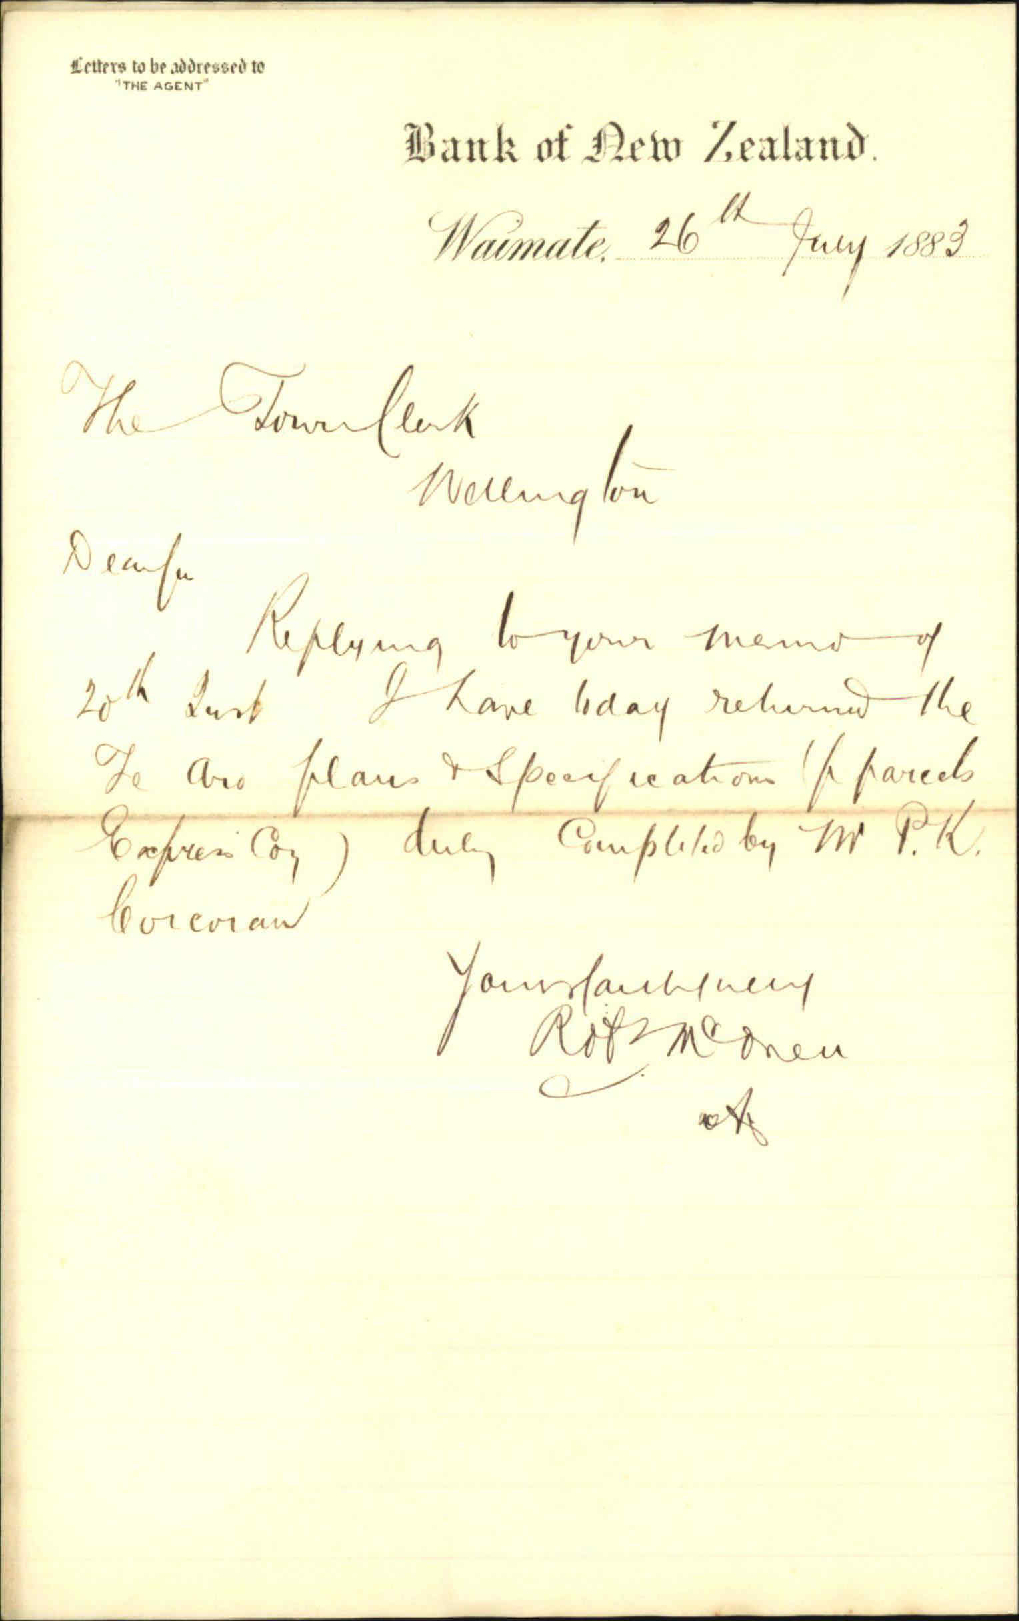 Letters to be addressed to
"THE AGENT"
Bank of New Zealand.
Waimate, 26th July 1883
The Town Clerk
Wellington
Dear Sir
Replying to your memo of
20th Inst I have today returned the
Te Aro plans & Specifications (p parcels
Express Coy) duly Completed by Mr P.K.
Corcoran
Yours faithfully
Robt